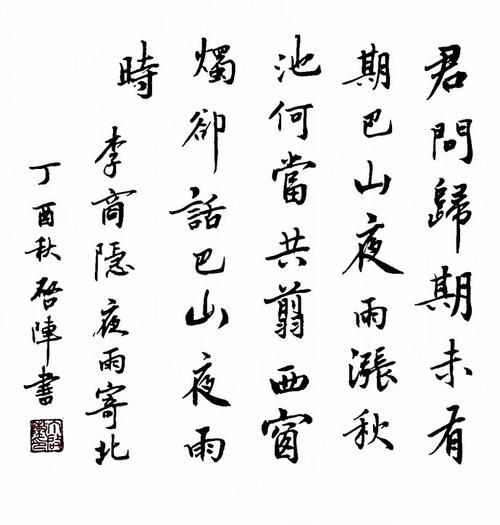 君問歸期未有
期巴山夜雨漲秋
池何當共翦西窗
燭卻話巴山夜雨
時
李商隱夜雨寄北
丁酉秋啓陣書